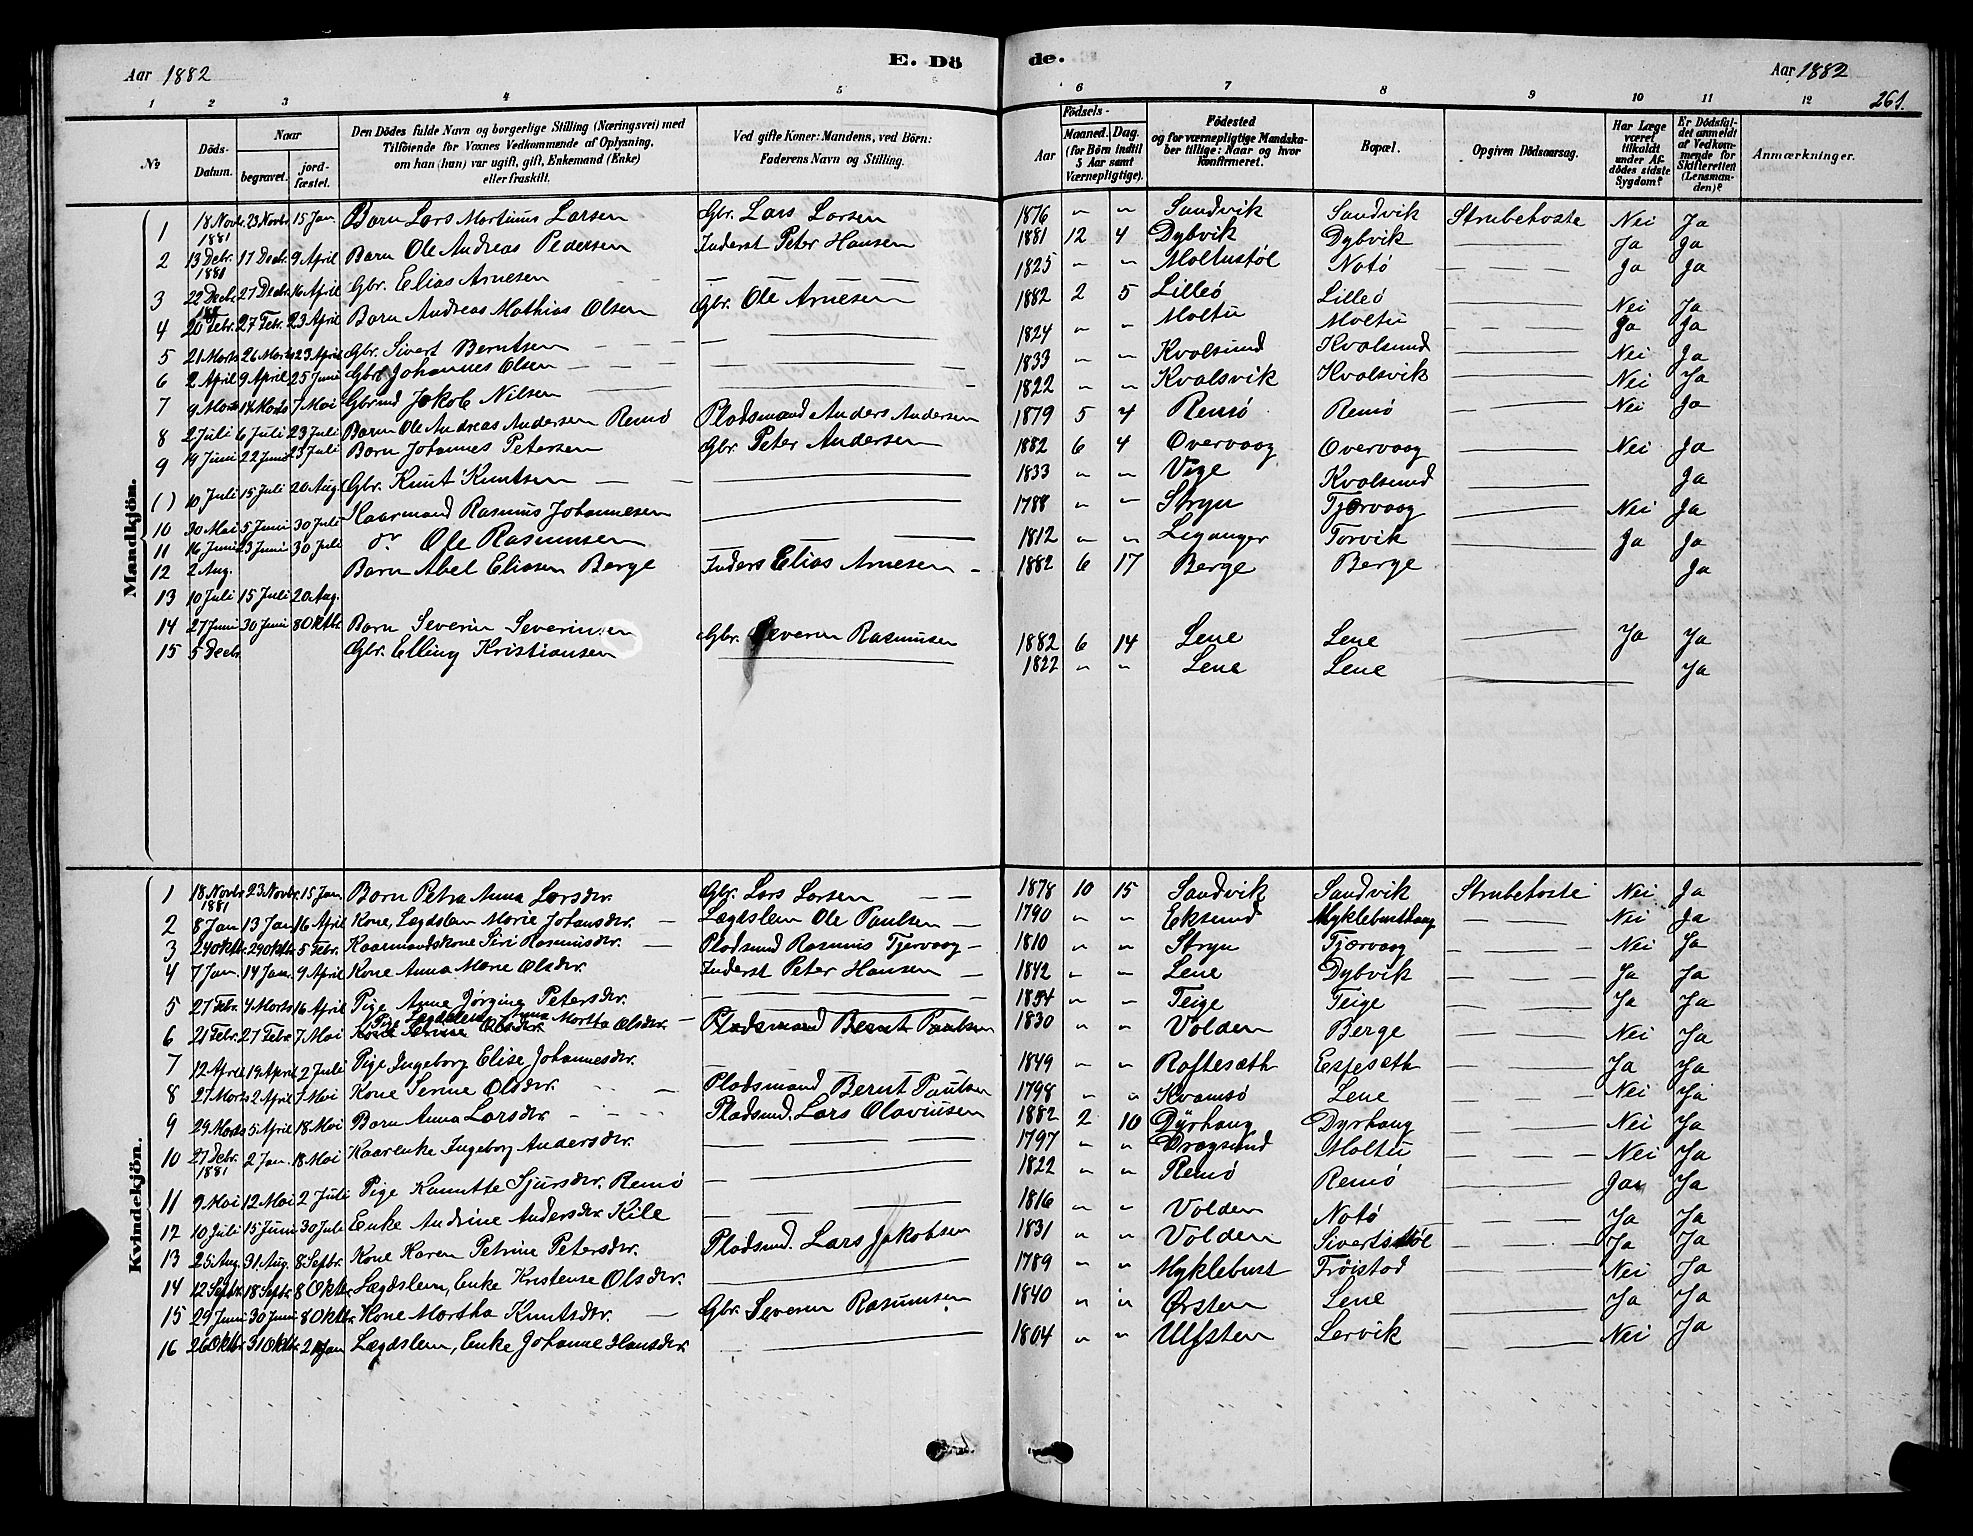 Aar 1882
E. Dö
de.
Aar 1882
261.
1 2 3 4 5 6 7 8 9 10 11 12
No
Döds-Datum.
Naar
begravet.
jord-fæstet.
Den Dödes fulde Navn og borgerlige Stilling (Næringsvei) med
Tilföiende for Voxnes Vedkommende af Oplysning,
om han (hun) var ugift, gift, Enkemand (Enke)
eller fraskilt.
Ved gifte Koner: Mandens, ved Börn:
Faderens Navn og Stilling.
Födsels-
Aar
Maaned. Dag.
(for Börn indtil
5 Aar samt
Værnepligtige).
Födested
og for værnepligtige Mandska-
ber tillige: Naar og hvor
konfirmeret.
Bopæl.
Opgiven Dödsaarsag.
Har Læge
været
tilkaldt
under Af-
dödes sidste
Sygdom?
Er Dödsfal-
det anmeldt
af Vedkom-
mende for
Skifteretten
(Lensman-
den)?
Anmærkninger.
Mandkjön.
1 18 Novbr 1881 23 Novbr 15 Jan. Barn Lars Martinus Larsen Gbr. Lars Larsen 1876 " " Sandvik Sandvik Strubehoste Nei Ja
2 13 Decbr. 1881 17 Decbr. 9 April Barn Ole Andreas Pedersen Inderst Peter Hansen 1881 12 4 Dybvik Dybvik Ja Ja
3 22 Decbr. 27 Decbr. 16 April Gbr. Elias Arnesen 1825 " " Moltustøl Notø Ja Ja
4 20 Febr. 27 Febr. 23 April Barn Andreas Mathias Olsen Gbr. Ole Arnesen 1882 2 5 Lilleø Lilleø Nei Ja
5 21 Marts 26 Marts 23 April Gbr. Sivert Berntsen 1824 " " Moltu Moltu Ja Ja
6 2 April 9 April 25 Juni Gbr. Johannes Olsen 1833 " " Kvalsund Kvalsund Nei Ja
7 9 Marts 14 Marts 7 Mai Gbrmd Jakob Nilsen 1822 " " Kvalsvik Kvalsvik Nei Ja
8 2 Juli 6 Juli 23 Juli Barn Ole Andreas Andersen Remø Pladsmand Anders Andersen 1879 5 4 Remø Remø Nei Ja
9 19 Juni 22 Juni 23 Juli Barn Johannes Petersen Gbr. Peter Andersen 1882 6 4 Overvaag Overvaag Nei Ja
( ) 10 Juli 15 Juli 20 Aug. Gbr. Knut Knutsen 1833 " " Vige Kvalsund Ja
10 30 Mai 5 Juni 30 Juli Kaarmand Rasmus Johannesen 1788 " " Stryn Tjærvaag Nei Ja
11 16 Juni 23 Juni 30 Juli do Ole Rasmussen 1812 " " Leganger Torvik Ja Ja
12 2 Aug. Barn Abel Eliasen Berge Inders Elias Arnesen 1882 6 17 Berge Berge Ja
13 10 Juli 15 Juli 20 Aug.
14 27 Juni 30 Juni 8 Oktbr. Barn Severin Severinsen Gbr. Severin Rasmusen 1882 6 14 Lene Lene Ja Ja
15 5 Decbr. Gbr. Elling Kristiansen 1822 " " Lene Lene Ja
Kvindekjön.
1 18 Novbr 1881 23 Novbr. 15 Jan. Barn Petra Anna Larsdtr. Gbr. Lars Larsen 1878 10 15 Sandvik Sandvik Strubehoste Nei Ja
2 8 Jan 13 Jan 16 April Kone, Lægdslem Marie Johansdtr. Lægdslem Ole Paulsen 1790 " " Eksund Myklebusthaug Nei Ja
3 24 Oktbr. 29 Oktbr. 5 Febr. Kaarmandskone Siri Rasmusdtr. Pladsmd Rasmus Tjervaag 1810 " " Stryn Tjærvaag Nei Ja
4 7 Jan. 14 Jan. 9 April Kone Anna Marie Olsdtr. Inderst Peter Hansen 1842 " " Lene Dybvik Ja Ja
5 27 Febr. 4 Marts 16 April Pige Anne Jørgine Petersdtr. 1854 " " Teige Teige Ja Ja
6 21 Febr. 27 Febr 7 Mai Pige Lægdslem Anna Martha Olsdtr. Pladsmand Bernt Paulsen 1830 " " Volden Berge Nei Ja
7 12 April 19 April 2 Juli Pige Ingeborg Elise Johannesdtr. 1849 " " Raftesæth Espesæth Ja Ja
8 27 Marts 2 April 7 Mai Kone Serine Olsdtr. Pladsmand Bernt Paulsen 1798 " " Kvamsø Lene Nei Ja
9 29 Marts 5 April 18 Mai Barn Anna Larsdtr. Pladsmd. Lars Olavinsen 1882 2 10 Dyrhaug Dyrhaug Nei Ja
10 27 Decbr. 1881 2 Jan. 18 Mai Kaarenke Ingeborg Andersdtr. 1797 " " Dragsund Moltu Nei Ja
11 9 Mai 12 Mai 2 Juli Pige Kanutte Sjursdtr. Remø 1822 " " Remø Remø Ja Ja
12 10 Juli 15 Juni 30 Juli Enke Andrine Andersdtr. Kile 1816 " " Volden Notø Ja Ja
13 25 Aug. 31 Aug. 8 Septbr. Kone Karen Petrine Petersdtr. Pladsmd. Lars Jakobsen 1831 " " Volden Sivertstøl Ja Ja
14 12 Septbr. 18 Septbr. 8 Oktbr. Lægdslem, Enke Kristense Olsdtr. 1789 " " Myklebust Frøistad Nei Ja
15 29 Juni 30 Juni 8 Oktbr. Kone Martha Knutsdtr. Gbr. Severin Rasmusen 1840 " " Ørsten Lene Ja Ja
16 26 Oktbr. 31 Oktbr. 21 Jan Lægdslem, Enke Johanne Hansdtr. 1804 " " Ulfsten Lervik Nei Ja